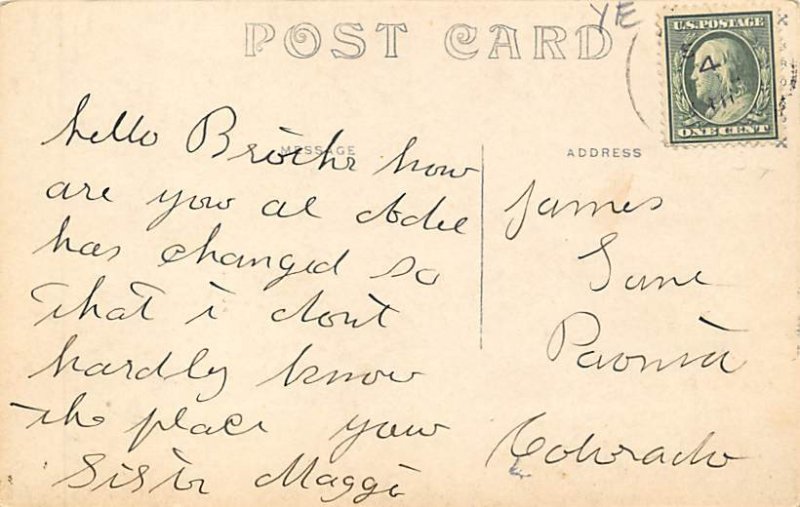 YE
POST CARD
U.S. POSTAGE
4
ONE CENT
MESSAGE
ADDRESS
hello Brother how
are you al
has changed so
that i dont
hardly know
the place your
Sister Maggi
James
Paonia
Colorado